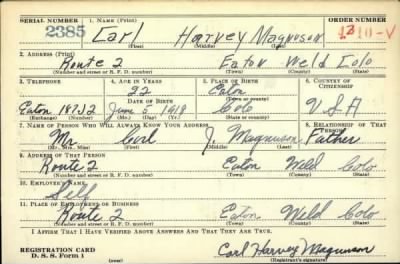 SERIAL NUMBER 1. NAME (Print) ORDER NUMBER
2385 Earl Harvey Magnuson 1210-V
(First) (Middle) (Last)
2. ADDRESS (Print)
Route 2 Eaton Weld Colo
(Number and street or R. F. D. number) (Town) (County) (State)
3. TELEPHONE 4. AGE IN YEARS 5. PLACE OF BIRTH 6. COUNTRY OF CITIZENSHIP
22 Eaton
DATE OF BIRTH (Town or county)
Eaton 187J2 June 5 1918 Colo USA
(Exchange) (Number) (Mo.) (Day) (Yr.) (State or country)
7. NAME OF PERSON WHO WILL ALWAYS KNOW YOUR ADDRESS 8. RELATIONSHIP OF THAT PERSON
Mr. Carl J Magnuson Father
(Mr., Mrs., Miss) (First) (Middle) (Last)
9. ADDRESS OF THAT PERSON
Route 2 Eaton Weld Colo
(Number and street or R. F. D. number) (Town) (County) (State)
10. EMPLOYER'S NAME
Self
11. PLACE OF EMPLOYMENT OR BUSINESS
Route 2 Eaton Weld Colo
(Number and street or R. F. D. number) (Town) (County) (State)
I AFFIRM THAT I HAVE VERIFIED ABOVE ANSWERS AND THAT THEY ARE TRUE.
REGISTRATION CARD
D. S. S. Form 1 (over) Carl Harvey Magnuson
(Registrant's signature)